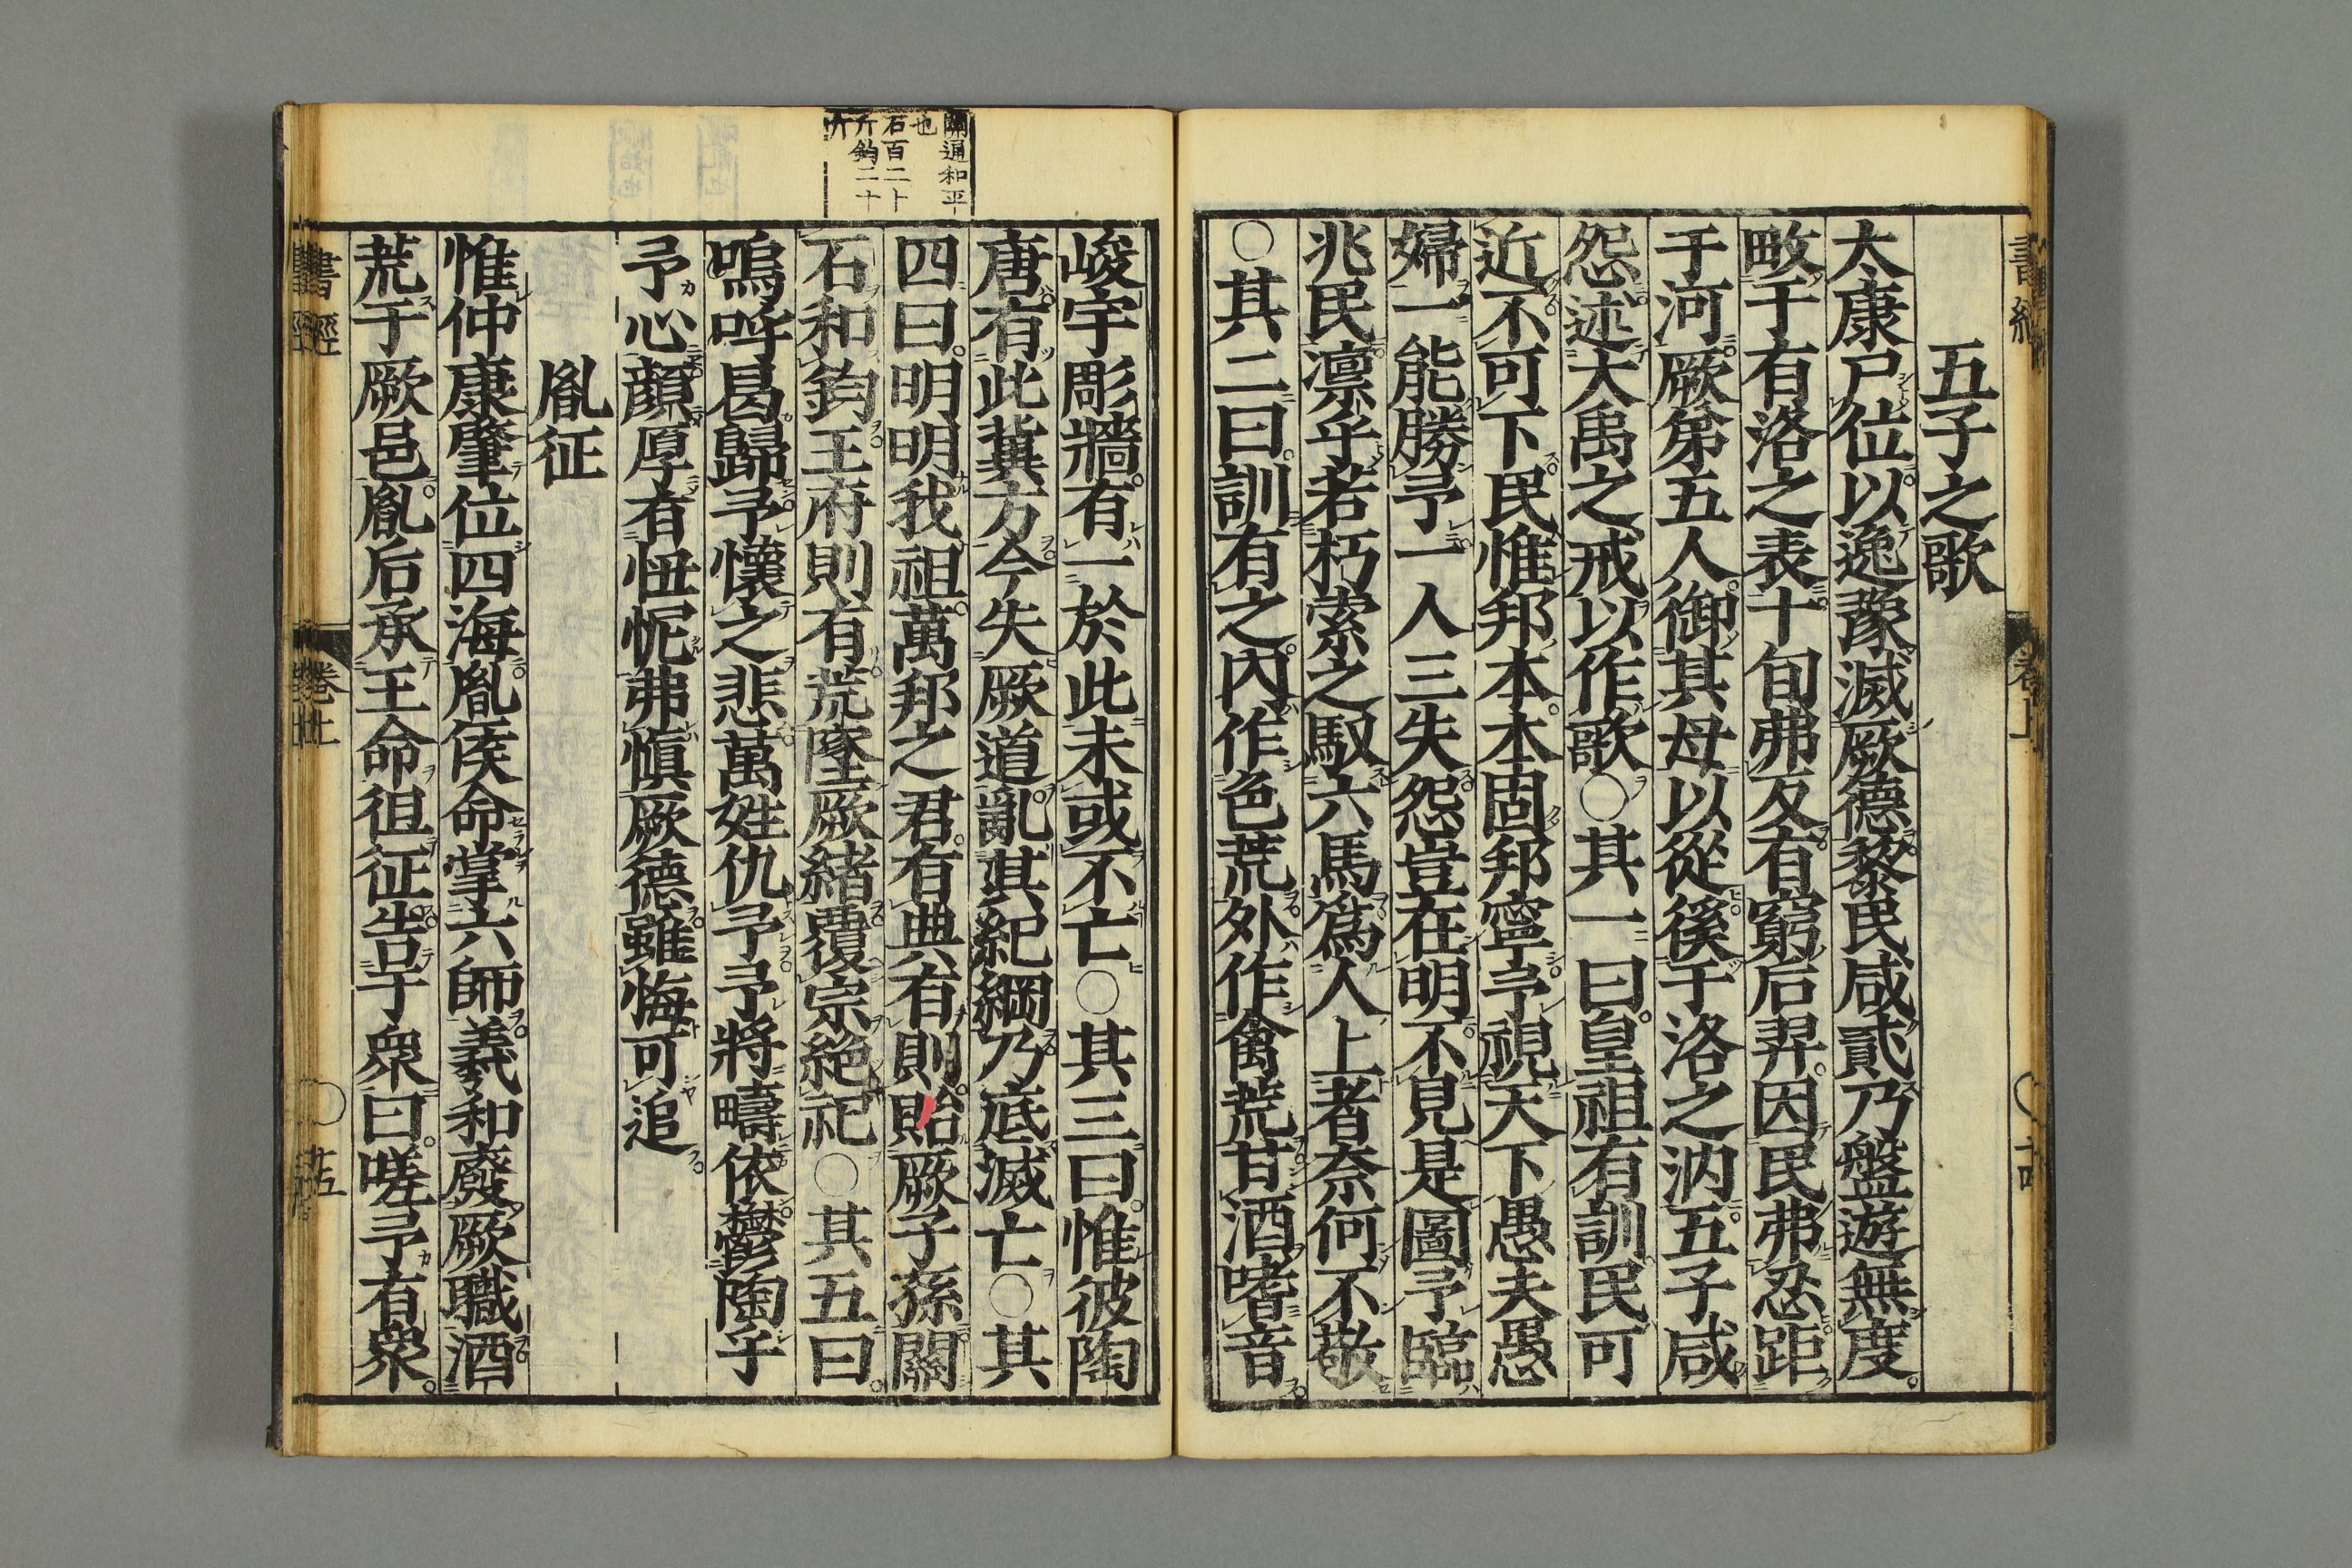 五子之歌
太康尸位以逸豫滅厥德黎民咸貳乃盤遊無度
畋于有洛之表十旬弗反有窮后羿因民弗忍距
于河厥弟五人御其母以從徯于洛之汭五子咸
怨述大禹之戒以作歌○其一曰皇祖有訓民可
近不可下民惟邦本本固邦寧予視天下愚夫愚
婦一能勝予一人三失怨豈在明不見是圖予臨
兆民凛乎若朽索之馭六馬爲人上者奈何不敬
○其二曰訓有之內作色荒外作禽荒甘酒嗜音
峻宇彫牆有一於此未或不亡○其三曰惟彼陶
唐有此冀方今失厥道亂其紀綱乃底滅亡○其
四曰明明我祖萬邦之君有典有則貽厥子孫關
石和鈞王府則有荒墜厥緒覆宗絶祀○其五曰
嗚呼曷歸予懷之悲萬姓仇予予將疇依鬱陶乎
予心顔厚有忸怩弗愼厥德雖悔可追
胤征
惟仲康肇位四海胤侯命掌六師羲和廢厥職酒
荒于厥邑胤后承王命徂征告于衆曰嗟予有衆
通和平
也
石百二十
斤鈞二十
斤
書經
卷上
○
十五